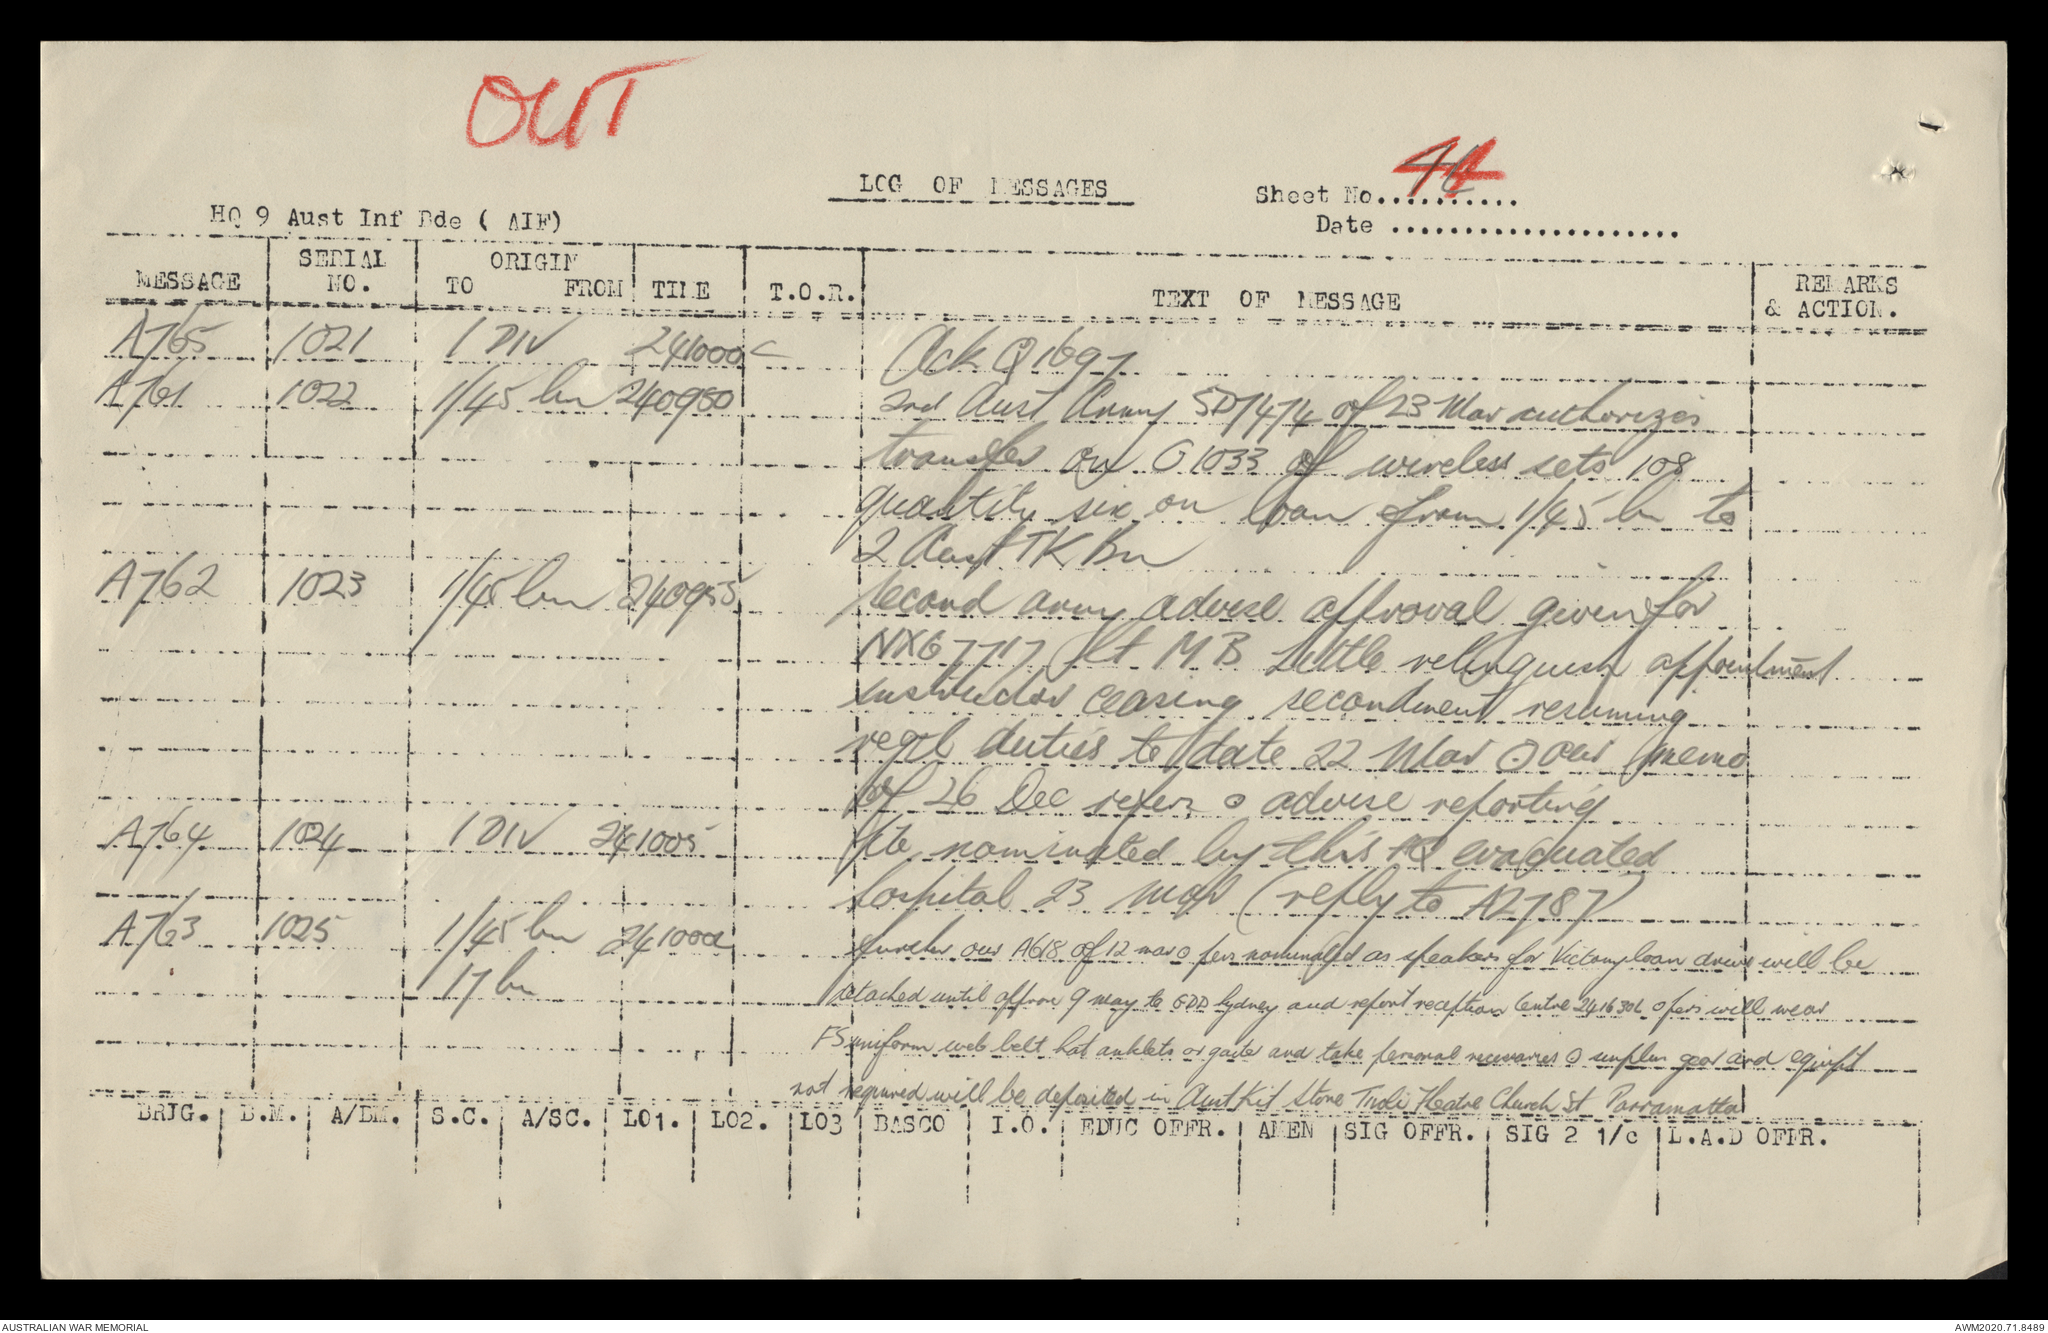 OUT
LOG OF MESSAGES
Sheet No. 44
HQ 9 Aust Inf Bde ( AIF)
Date ....................
MESSAGE SERIAL NO. ORIGIN TO FROM TIME T.O.R. TEXT OF MESSAGE REMARKS & ACTION.
A765 1021 1 DIV 241000 Ack Q1697
A761 1022 1/45 bn 240950 2nd Aust Army SD7474 of 23 Mar authorizes
transfer on G1033 of wireless sets 108
quantity six on loan from 1/45 bn to
2 Aust TK Bn
A762 1023 1/45 bn 240955 second army advise approval given for
NX67717 Lt M B Little relinquish appointment
instructor ceasing secondment resuming
regtl duties to date 22 Mar o our memo
of 26 Dec refers o advise reporting
A764 1024 1 DIV 241005 Pte nominated by this HQ evacuated
hospital 23 Mar (reply to A2787)
A763 1025 1/45 bn 241000 further our A618 of 12 mar o pers nominated as speakers for Victory loan drive will be
17 bn detached until approx 9 may to GDD Sydney and report reception Centre 241630L o pers will wear
FS uniform web belt hat anklets or gaiter and take personal necessaries o surplus gear and equipt
not required will be deposited in Aust Kit Store Tivoli Theatre Church St Parramatta
BRIG. B.M. A/BM. S.C. A/SC. LO1. LO2. LO3 BASCO I.O. EDUC OFFR. AMEN SIG OFFR. SIG 2 1/c L.A.D OFFR.
AUSTRALIAN WAR MEMORIAL
AWM2020.71.8489